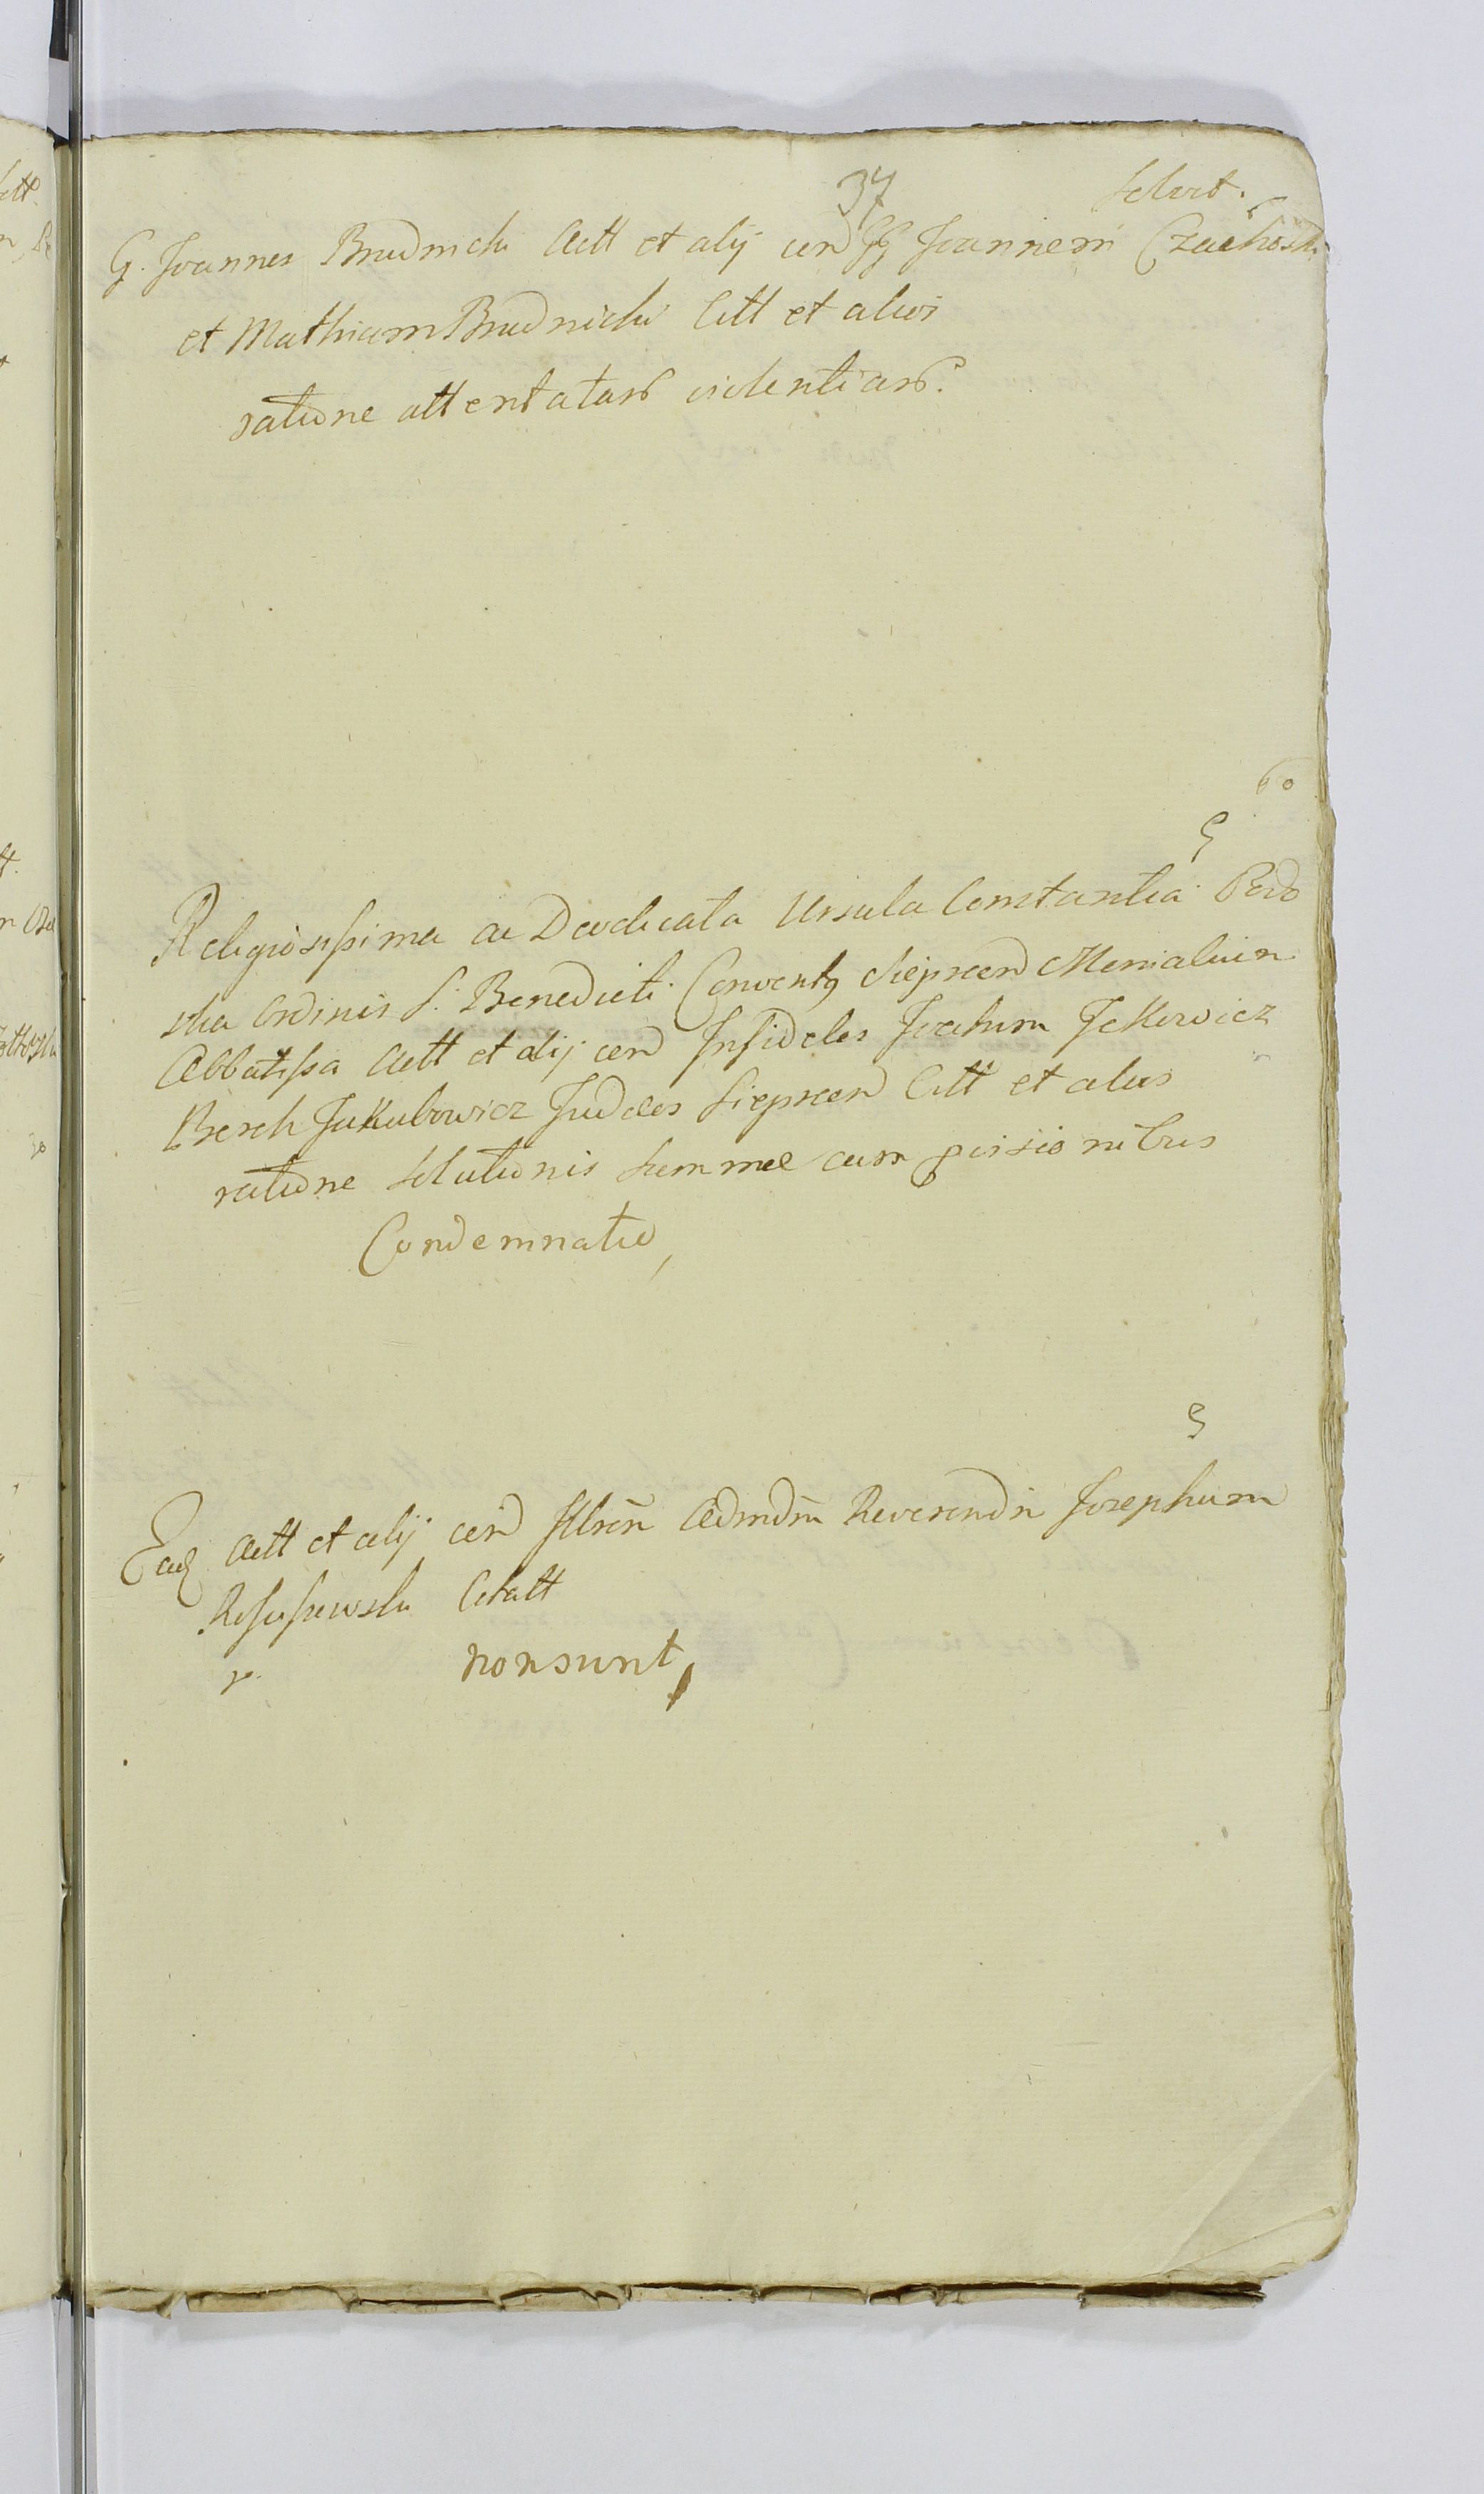 37 Solvit.
G. Joannes Brudnicki Act et alij cũ GG Joannem Czachoski
et Mathiam Brudnicki Citt et alios
ratione attentatar violentiar.
Religiosissima ac Deodicata Ursula Constantia
ska Ordinis S. Benedicti Convent9 Siepscen Monialium
Abbatissa Act et alij cũ Infideles Joachim Jckowicz
Berek Jakubowicz Judeos Siepscen Citt et alios
ratione solutionis summae cum provisionibus
Condemnatio,
Eadę Act et alij cũ Illrēn Admdm Reverendm Josephum
Citatt
non sunt,